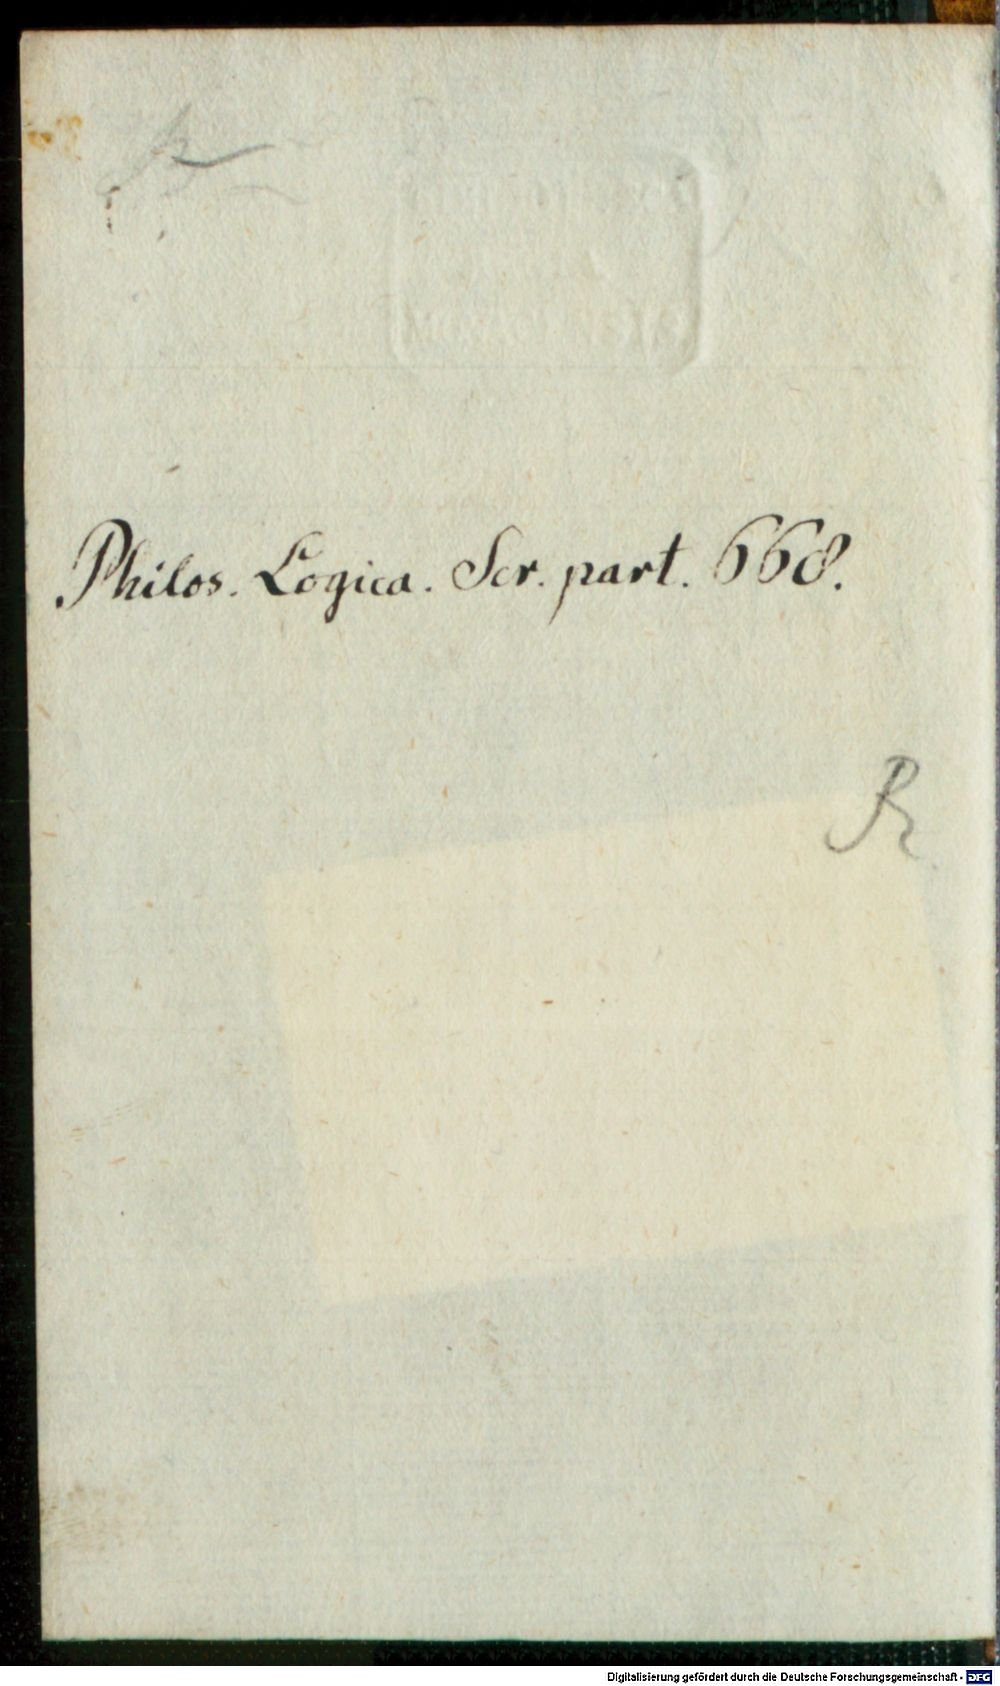 Philos. Logica. Scr. part. 668.
R
Digitalisierung gefördert durch die Deutsche Forschungsgemeinschaft - DFG